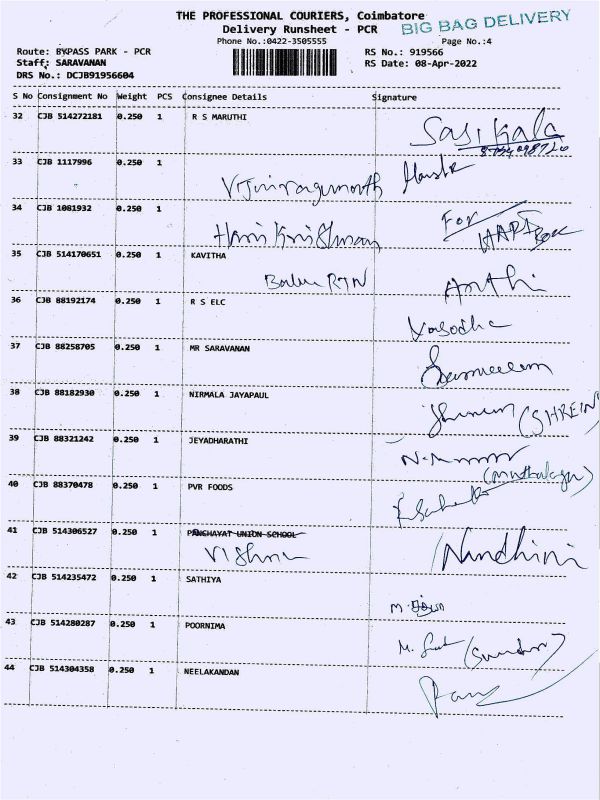 THE PROFESSIONAL COURIERS, Coimbatore
BIG BAG DELIVERY
Delivery Runsheet - PCR
Phone No.:0422-3505555
Page No.:4
Route: BYPASS PARK - PCR
RS No.: 919566
Staff: SARAVANAN
RS Date: 08-Apr-2022
DRS No.: DCJB91956604
S No Consignment No Weight PCS Consignee Details Signature
32 CJB 514272181 0.250 1 R S MARUTHI
Sasikala
33 CJB 1117996 0.250 1
34 CJB 1081932 0.250 1
Hari Krishnan
For
35 CJB 514170651 0.250 1 KAVITHA
36 CJB 88192174 0.250 1 R S ELC
Yasodha
37 CJB 88258705 0.250 1 MR SARAVANAN
38 CJB 88182930 0.250 1 NIRMALA JAYAPAUL
39 CJB 88321242 0.250 1 JEYADHARATHI
40 CJB 88370478 0.250 1 PVR FOODS
41 CJB 514306527 0.250 1 PANSHAYAT UNION SCHOOL
Vishnu Nandhini
42 CJB 514235472 0.250 1 SATHIYA
43 CJB 514280287 0.250 1 POORNIMA
44 CJB 514304358 0.250 1 NEELAKANDAN